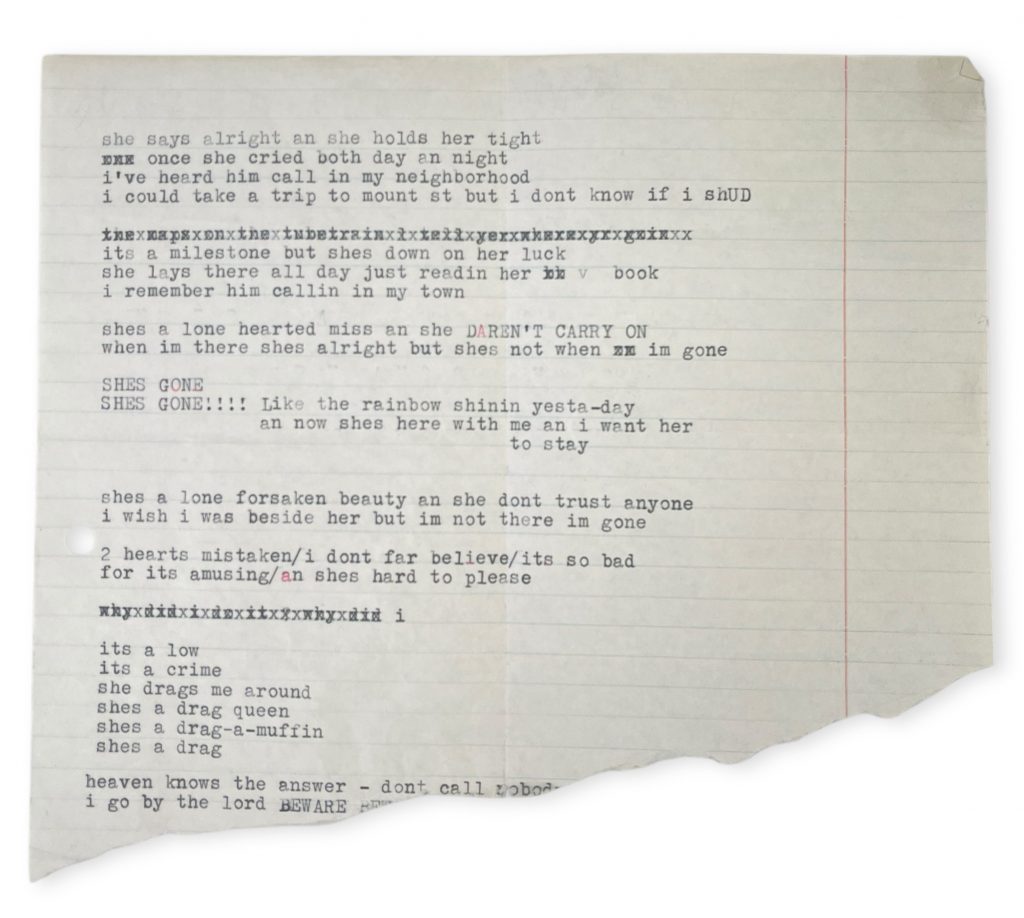 she says alright an she holds her tight
xxx once she cried both day an night
i've heard him call in my neighborhood
i could take a trip to mount st but i dont know if i shUD
its a milestone but shes down on her luck
she lays there all day just readin her v book
i remember him callin in my town
shes a lone hearted miss an she DAREN'T CARRY ON
when im there shes alright but shes not when im gone
SHES GONE
SHES GONE!!!! Like the rainbow shinin yesta-day
an now shes here with me an i want her
to stay
shes a lone forsaken beauty an she dont trust anyone
i wish i was beside her but im not there im gone
2 hearts mistaken/i dont far believe/its so bad
for its amusing/an shes hard to please
whyxdidxixdoxitxxxwhyxdid i
its a low
its a crime
she drags me around
shes a drag queen
shes a drag-a-muffin
shes a drag
heaven knows the answer - dont call
i go by the lord BEWARE